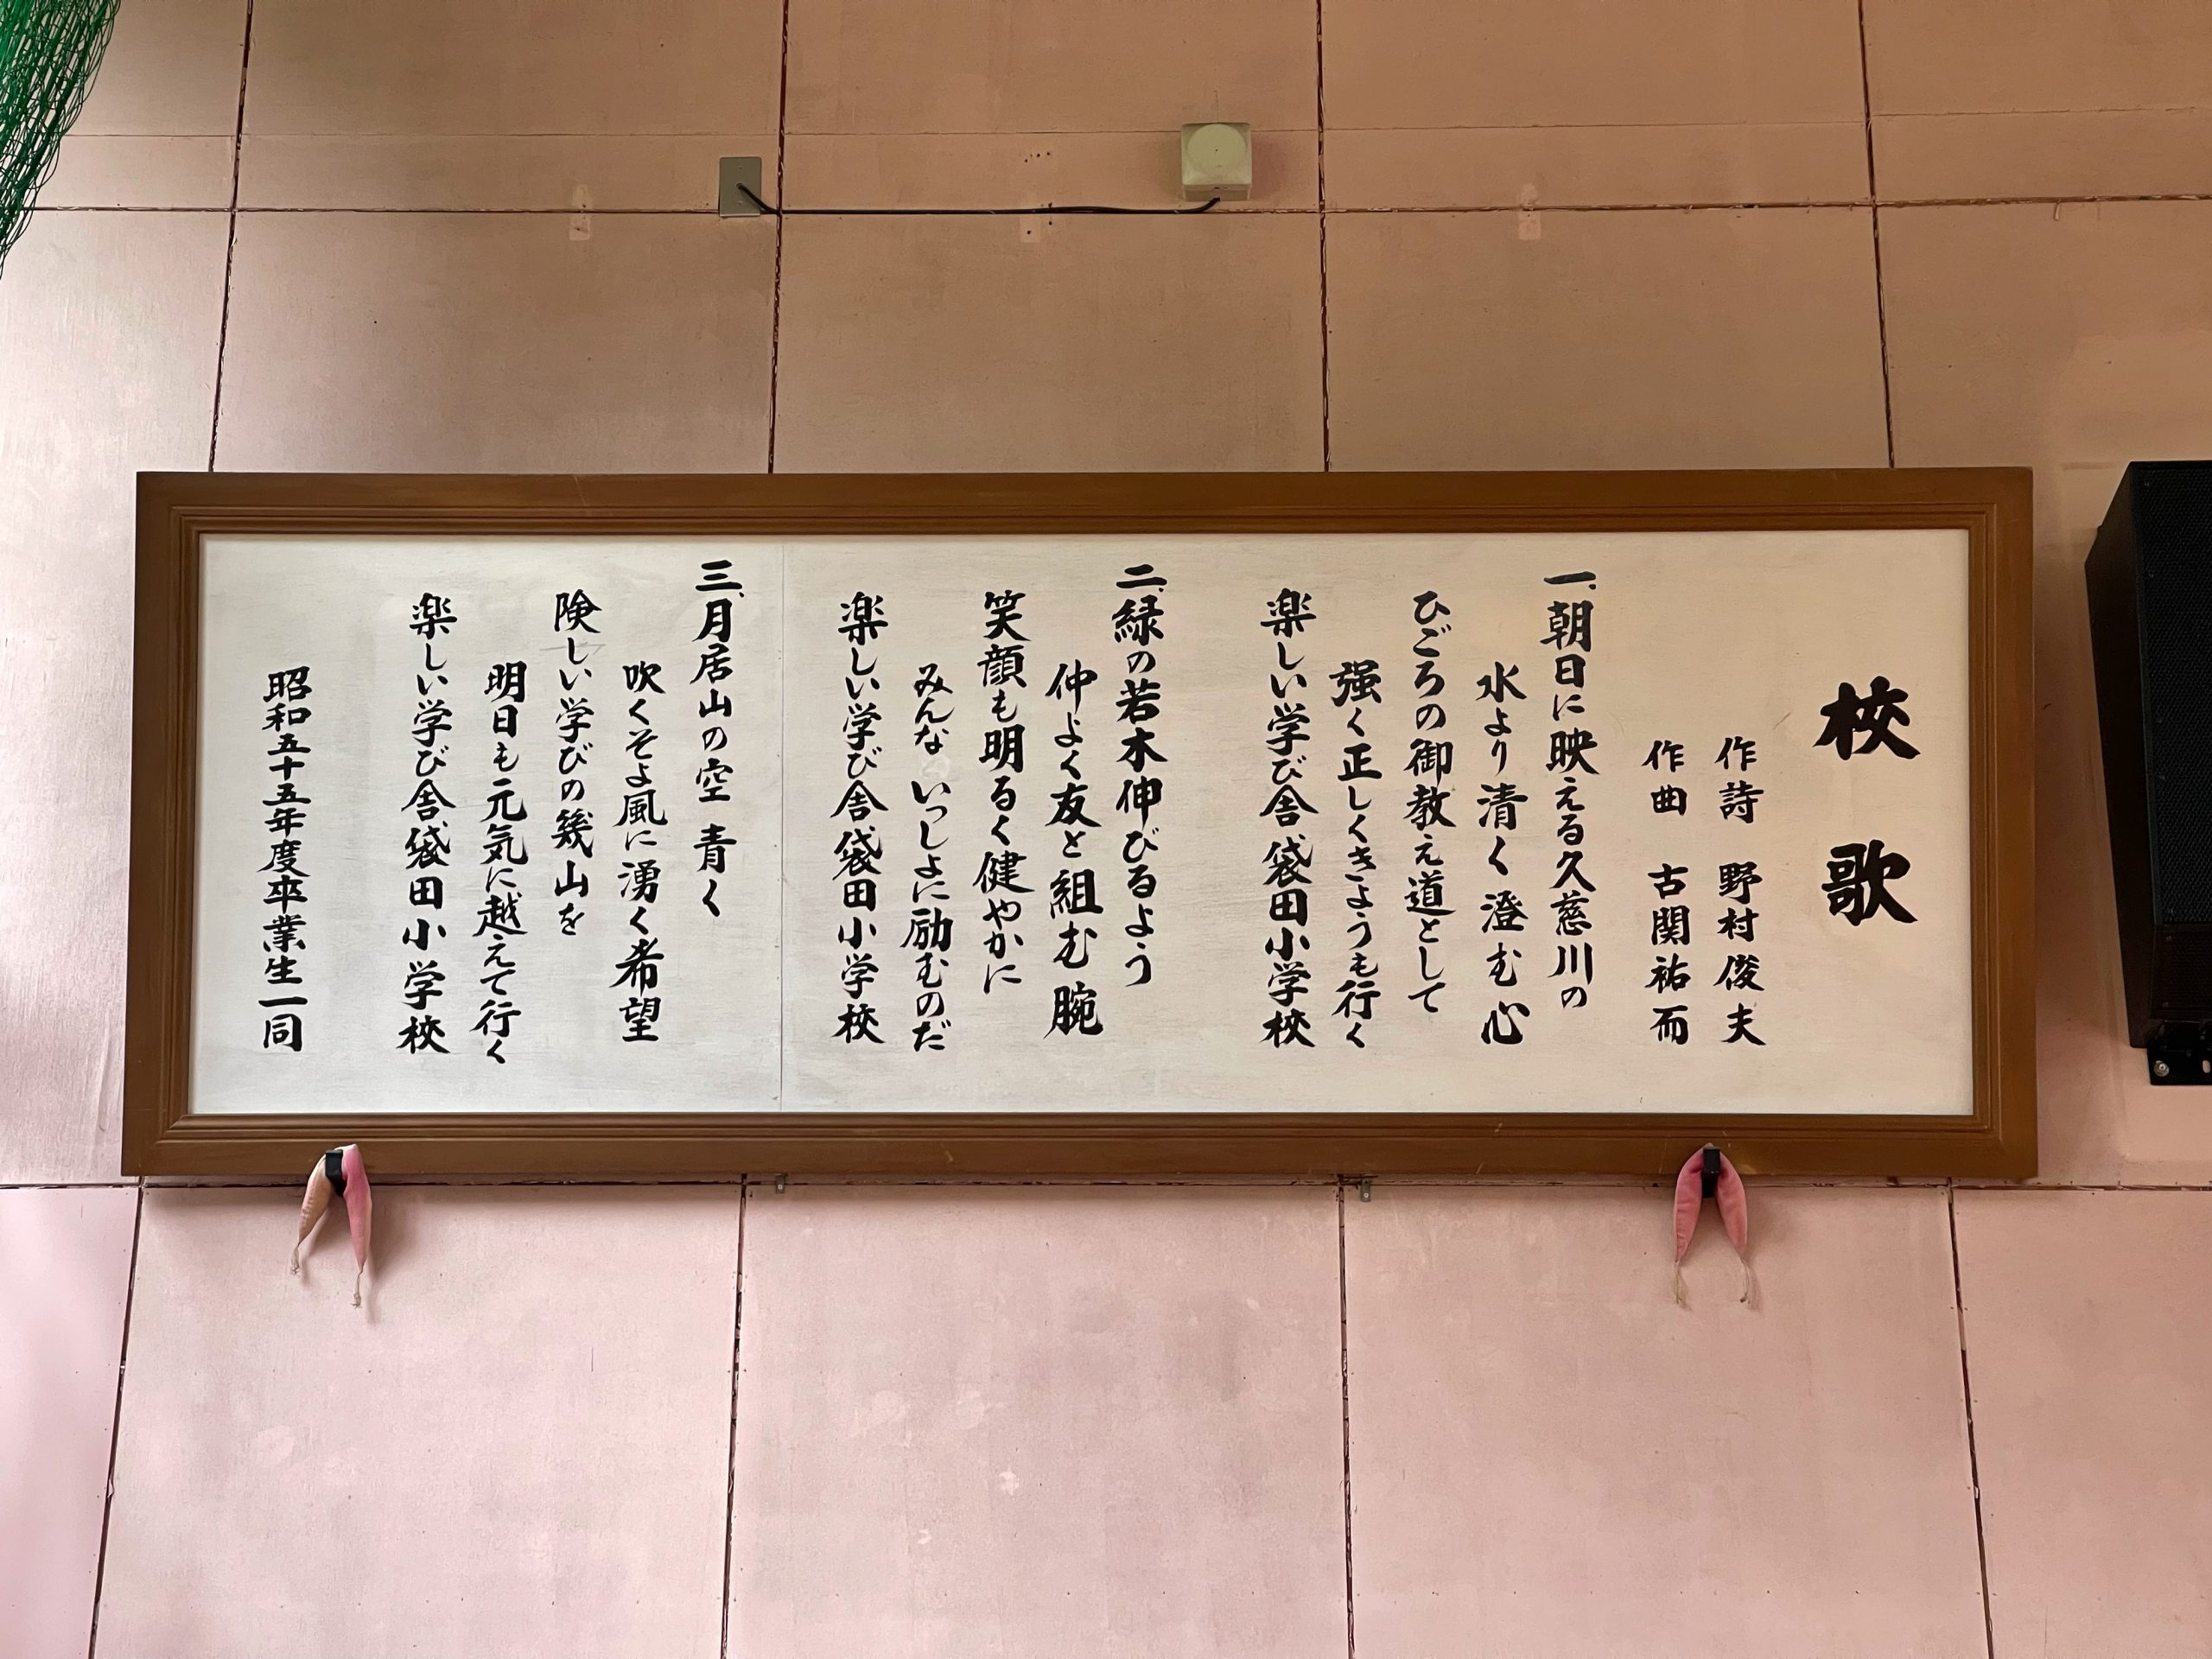 校歌
作詩 野村俊夫
作曲 古関祐而
一、朝日に映える久慈川の
水より清く澄む心
ひごろの御教え道として
強く正しくきようも行く
楽しい学び舎袋田小学校
二、緑の若木伸びるよう
仲よく友と組む腕
笑顔も明るく健やかに
みんな いっしよに励むのだ
楽しい学び舎袋田小学校
三、月居山の空 青く
吹くそよ風に湧く希望
険しい学びの幾山を
明日も元気に越えて行く
楽しい学び舎袋田小学校
昭和五十五年度卒業生一同